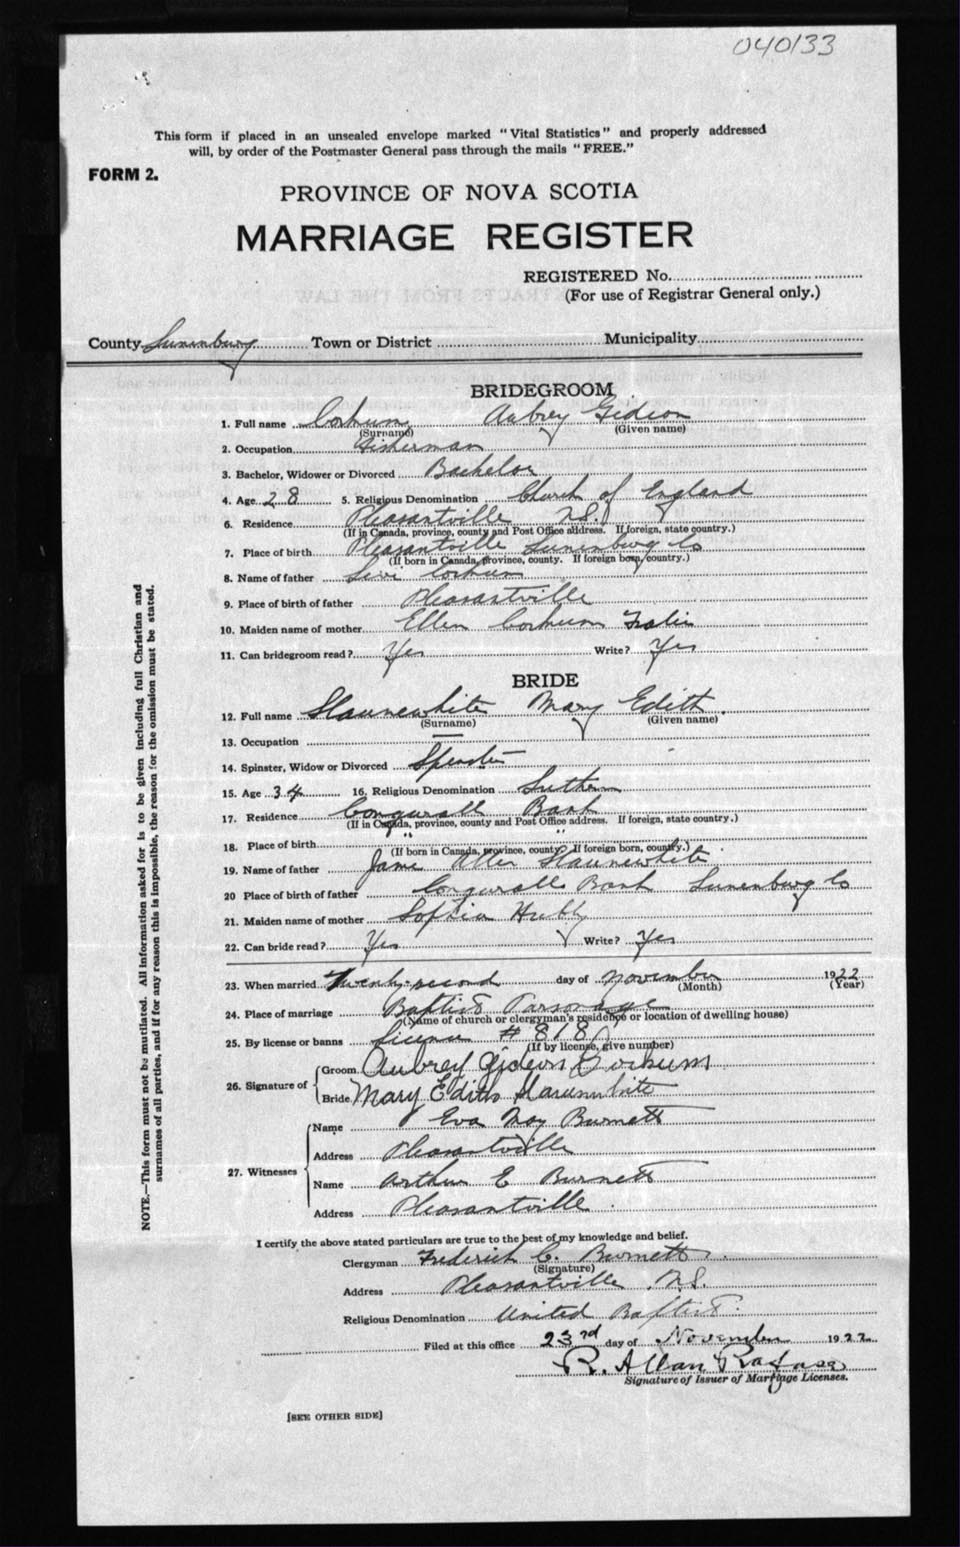 040133
This form if placed in an unsealed envelope marked "Vital Statistics" and properly addressed
will, by order of the Postmaster General pass through the mails "FREE."
FORM 2.
PROVINCE OF NOVA SCOTIA
MARRIAGE REGISTER
REGISTERED No.
(For use of Registrar General only.)
County Lunenburg Town or District Municipality
BRIDEGROOM
1. Full name Corkum Aubrey Gideon
(Surname) (Given name)
2. Occupation Fisherman
3. Bachelor, Widower or Divorced Bachelor
4. Age 28 5. Religious Denomination Church of England
6. Residence Pleasantville N.S.
(If in Canada, province, county and Post Office address. If foreign, state country.)
7. Place of birth Pleasantville Lunenburg Co
(If born in Canada, province, county. If foreign born, country.)
8. Name of father Levi Corkum
9. Place of birth of father Pleasantville
10. Maiden name of mother Ellen Corkum
11. Can bridegroom read? Yes Write? Yes
BRIDE
12. Full name Slaunewhite Mary Edith
(Surname) (Given name)
13. Occupation —
14. Spinster, Widow or Divorced Spinster
15. Age 34 16. Religious Denomination Lutheran
17. Residence Conquerall Bank
(If in Canada, province, county and Post Office address. If foreign, state country.)
18. Place of birth " "
(If born in Canada, province, county. If foreign born, country.)
19. Name of father Slaunewhite
20 Place of birth of father Conquerall Bank Lunenburg Co
21. Maiden name of mother Sophia
22. Can bride read? Yes Write? Yes
23. When married Twenty-second day of November 1922
(Month) (Year)
24. Place of marriage Baptist Parsonage
(Name of church or clergyman's residence or location of dwelling house)
25. By license or banns License #
(If by license, give number)
26. Signature of
Groom Aubrey Gideon Corkum
Bride Mary Edith Slaunwhite
27. Witnesses
Name Eva May Burnett
Address Pleasantville
Name Arthur E Burnett
Address Pleasantville
I certify the above stated particulars are true to the best of my knowledge and belief.
Clergyman Frederick C. Burnett
(Signature)
Address Pleasantville N.S.
Religious Denomination United Baptist.
Filed at this office 23rd day of November 1922
R. Allan
Signature of Issuer of Marriage Licenses.
[SEE OTHER SIDE]
NOTE.—This form must not be mutilated. All information asked for is to be given including full Christian and
surnames of all parties, and if for any reason this is impossible, the reason for the omission must be stated.